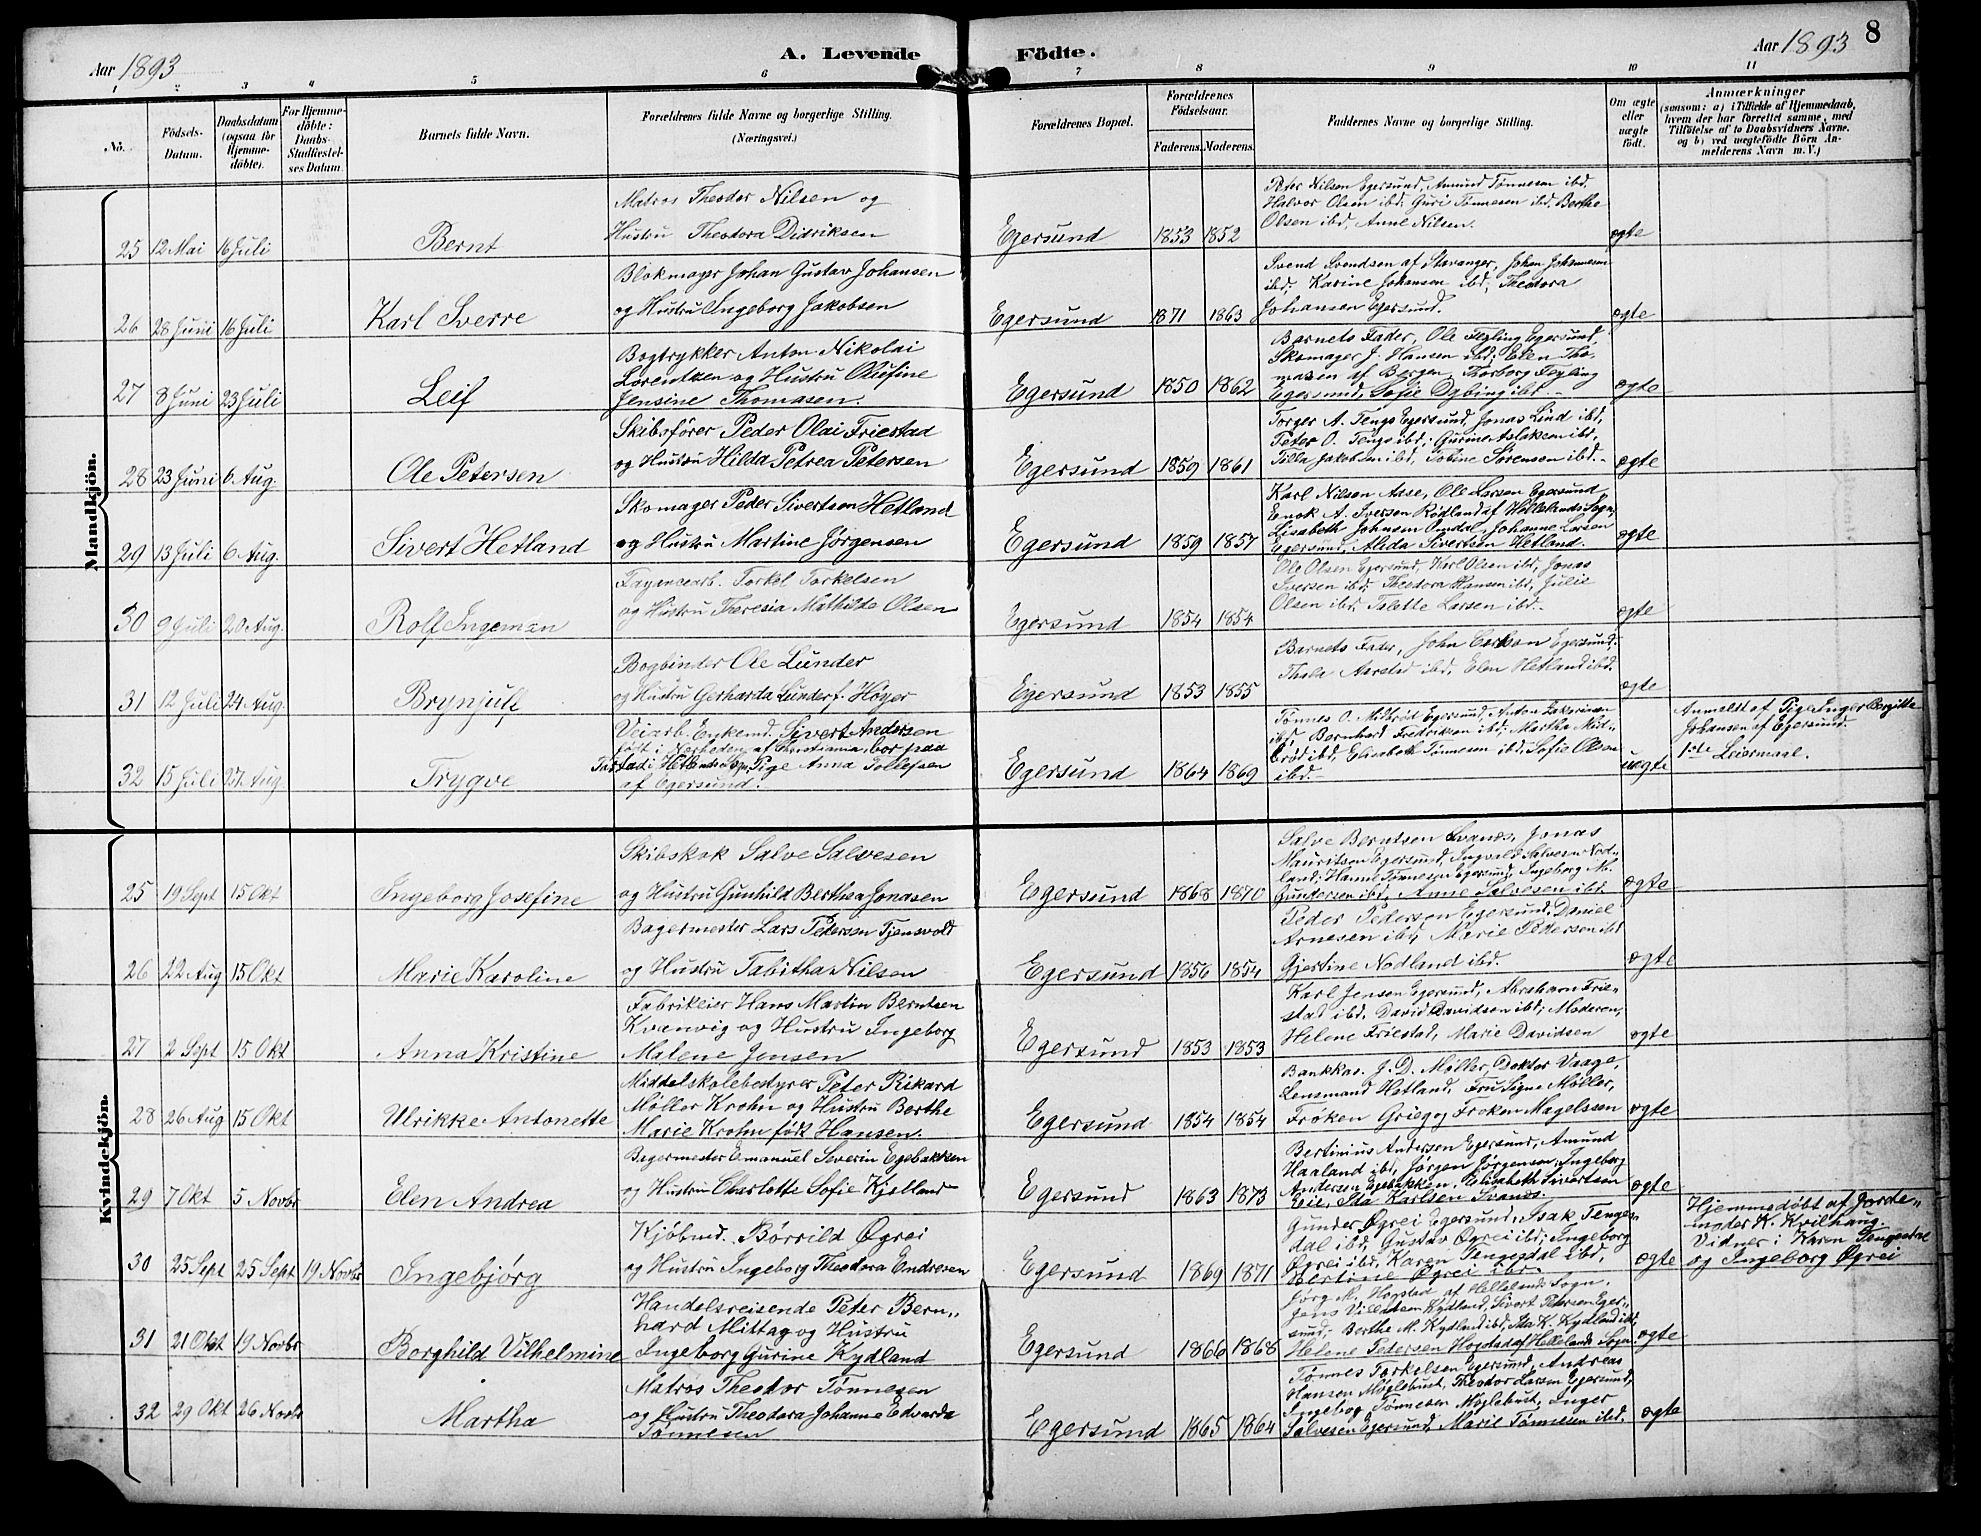 Aar 1893
A. Levende Födte.
Aar 1893
8
1 2 3 4 5 6 7 8 9 10 11
No.
Födsels-Datum.
Daabsdatum (ogsaa for Hjemme-döbte).
For Hjemme-döbte: Daabs-Stadfæstel-ses Datum.
Barnets fulde Navn.
Forældrenes fulde Navne og borgerlige Stilling. (Næringsvei.)
Forældrenes Bopæl.
Forældrenes Födselsaar.
Faderens. Moderens.
Faddernes Navne og borgerlige Stilling.
Om ægte eller uægte födt.
Anmærkninger
(saasom: a) i Tilfælde af Hjemmedaab, hvem der har forrettet samme, med Tilföielse af to Daabsvidners Navne. og b) ved uægtefödte Börn An-melderens Navn m.V.)
Mandkjön.
25 12 Mai 16 Juli Bernt
Matros Theodor Nilsen og
Hustru Theodora Didriksen
Egersund 1853 1852
Peter Nilsen Egersund, Amund Tønnesen ibd.
Halvor Olsen ibd, Guri Tønnesen ibd. Berthe
Olsen ibd, Anne Nilsen.
ægte
26 28 Juni 16 Juli Karl Sverre
Blokmager Johan Gustav Johansen
og Hustru Ingeborg Jakobsen
Egersund 1871 1863
Svend Svendsen af Stavanger, Johan Johannesen
ibd, Karine Johansen ibd, Theodora
Johansen Egersund.
ægte
27 8 Juni 23 Juli Leif
Bogtrykker Anton Nikolai
Lorentzen og Hustru Oliefine
Jensine Thomasen.
Egersund 1850 1862
Barnets Fader, Ole Feyling Egersund,
Skomager J. Hansen ibd, Elen Tho-
masen af Bergen, Thorborg Feyling
Egersund, Sofie Dybing ibd.
ægte
28 23 Juni 6 Aug. Ole Petersen
Skibsfører Peder Olai Friestad
og Hustru Hilda Petrea Petersen
Egersund 1859 1861
Torger A. Tengs Egersund, Jonas Lind ibd,
Peter O. Tengs ibd, Gurine Aslaksen ibd,
Tilla Jakobsen ibd, Tobine Sørensen ibd.
ægte
29 13 Juli 6 Aug. Sivert Hetland
Skomager Peder Sivertsen Hetland
og Hustru Martine Jørgensen
Egersund 1859 1857
Karl Nilsen Aase, Ole Larsen Egersund
Enok A. Iversen Rødland af Hellelands Sogn,
Lisabeth Johnsen Omdal, Johanne Larsen
Egersund, Alida Sivertsen Hetland.
ægte
30 9 Juli 20 Aug. Rolf Ingeman
Fayencearb. Torkel Torkelsen
og Hustru Theresia Mathilde Olsen
Egersund 1854 1854
Ole Olsen Egersund, Karl Olsen ibd, Jonas
Iversen ibd, Theodora Hansen ibd, Julie
Olsen ibd, Talette Larsen ibd.
ægte
31 12 Juli 24 Aug. Brynjulf
Bogbinder Ole Lunder
og Hustru Gerharda Lunder f. Høyer
Egersund 1853 1855
Barnets Fader, John Carlson Egersund,
Thala Aarstad ibd. Elen Hetland ibd.
ægte
32 15 Juli 27 Aug. Trygve
Veiarb. Enkemd. Sivert Andersen
født i Nerheden af Christiania, bor paa
i Hetlands Sogn, Pige Anna Tollefsen
af Egersund.
Egersund 1864 1869
Tønnes O. Midbrød Egersund, Anton Zakariasen
ibd, Bernhard Fredriksen ibd, Martha Mid-
brød ibd, Elisabeth Tønnesen ibd, Sofie Olsen
ibd.
uægte
Anmeldt af Pige Inger Bergitte
Johansen af Egersund.
1ste Leiermaal.
Kvindekjön.
25 19 Sept 15 Okt Ingeborg Josefine
Skibskok Salve Salvesen
og Hustru Gunhild Berthea Jonasen
Egersund 1868 1870
Salve Berntsen Svanes, Jonas
Mauritsen Egersund, Ingvald Salvesen Nod-
land, Hanne Tønnesen Egersund, Ingeborg M.
Gundersen ibd, Anne Salvesen ibd.
ægte
26 22 Aug 15 Okt Marie Karoline
Bagermester Lars Petersen Tjensvold
og Hustru Tabitha Nilsen
Egersund 1856 1854
Peder Pedersen Egersund, Daniel
Arnesen ibd, Marie Pedersen ibd
Gjertine Nodland ibd.
ægte
27 2 Sept 15 Okt Anna Kristine
Fabrikeier Hans Martin Berntsen
Kvænvig og Hustru Ingeborg
Malene Jensen
Egersund 1853 1853
Karl Jensen Egersund, Abraham Frie-
stad ibd. David Davidsen ibd, Moderen,
Helene Friestad, Marie Davidsen
ægte
28 26 Aug 15 Okt Ulrikke Antonette
Middelskolebestyrer Peter Rikard
Møller Krohn og Hustru Berthe
Marie Krohn født Hansen.
Egersund 1854 1854
Bankkas. J. D. Møller, Doktor Vaage,
Lensmand Hetland, Fru Signe Møller,
Frøken Grieg og Frøken Magelssen
ægte
29 7 Okt 5 Novbr Elen Andrea
Bagermester Emanuel Severin Egebakken
og Hustru Charlotte Sofie Kjelland
Egersund 1863 1873
Bertinius Andersen Egersund, Amund
Haaland ibd, Jørgen Jørgensen, Ingeborg
Andersen Egebakken, Elisabeth Sivertsen
Eie, Ida Karlsen Svanes.
ægte
30 25 Sept 25 Sept 19 Novbr Ingebjørg
Kjøbmd. Børrild Øgrei
og Hustru Ingeborg Theodora Endresen
Egersund 1869 1871
Gunder Øgrei Egersund, Isak Tenges-
dal ibd, Gustav Øgrei ibd, Ingeborg
Øgrei ibd, Karen Tengesdal ibd,
Bertine Øgrei ibd.
ægte
Hjemmedøbt af Jorde-
moder K. Kvilhaug.
Vidner: Karen Tengesdal
og Ingeborg Øgrei
31 21 Okt 19 Novbr Borghild Vilhelmine
Handelsreisende Peter Bern-
hard Mittag og Hustru
Ingeborg Gurine Kydland
Egersund 1866 1868
Jørg M. Hogstad af Hellelands Sogn,
Jens Villumsen Kydland, Sivert Petersen Eger-
sund, Berthe M. Kydland ibd, Ida K. Kydland ibd,
Helene Pedersen Hogstad af Hellelands Sogn.
ægte
32 29 Okt 26 Novbr Martha
Matros Theodor Tønnesen
og Hustru Theodora Johanne Edvarda
Tønnesen
Egersund 1865 1864
Tønnes Torkelsen Egersund, Andreas
Hansen Møglebust, Theodor Larsen Egersund,
Ingeborg Tønnesen Møglebust, Inger
Salvesen Egersund, Marie Tønnesen ibd.
ægte